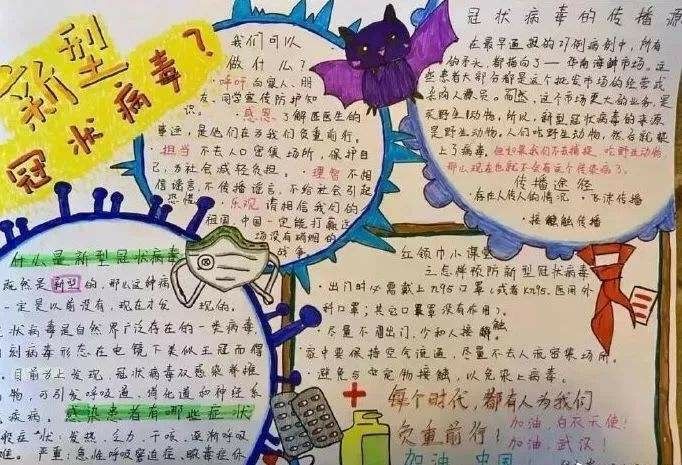 新型
冠状病毒?
我们可以
做什么?
·呼吁向家人、朋
友、同学宣传防护知
识。·感恩了解医生的
事迹,是他们在为我们负重前行。
·担当 不去人口密集场所,保护自
己,为社会减轻负担。·理智 不相
信谣言,不传播谣言,不给社会引起
恐慌。·乐观 请相信我们的
祖国,中国一定能打赢这
场没有硝烟的
战争
冠状病毒的传播源
在最早通报的27例病例中,所有
的矛头,都指向了——华南海鲜市场。这
些患者大部分都是这个批发市场的经营或
采购人员。而然,这个市场更大的业务,是
卖野生动物。所以,新型冠状病毒的来源
是野生动物。人们吃野生动物,然后就染
上了病毒。但如果我们不去捕捉、吃野生动物,
那么现在也就不会有这个传染病了。
传播途径
·存在人传人的情况 ·飞沫传播
·接触传播
什么是新型冠状病毒
既然是新型的,那么这种病
一定是以前没有,现在才发现的。
状病毒是自然界广泛存在的一类病毒
刻病毒形态在电镜下类似王冠而得
目前为止发现,冠状病毒仅感染脊椎
物,可引发呼吸道、消化道和神经系
疾病。感染患者有哪些症状
症状:发热,乏力,干咳,逐渐呼吸
难。严重:急性呼吸窘迫症、脓毒症休
红领巾小课堂
之怎样预防新型冠状病毒
·出门时必需戴上N95口罩(或者KN95,医用外
科口罩;其它口罩没有作用)。
·尽量不用出门,少和人接触
室中要保持空气流通,尽量不去人流密集场所。
·避免与宠物接触,以免染上病毒。
每个时代,都有人为我们
负重前行!
加油,白衣天使!
加油,武汉!
加油 中国